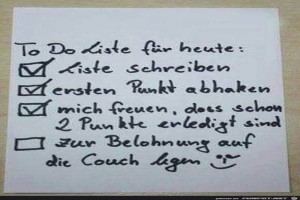 To Do Liste für heute:
☑ Liste schreiben
☑ ersten Punkt abhaken
☑ mich freuen, dass schon
2 Punkte erledigt sind
☐ zur Belohnung auf
die Couch legen